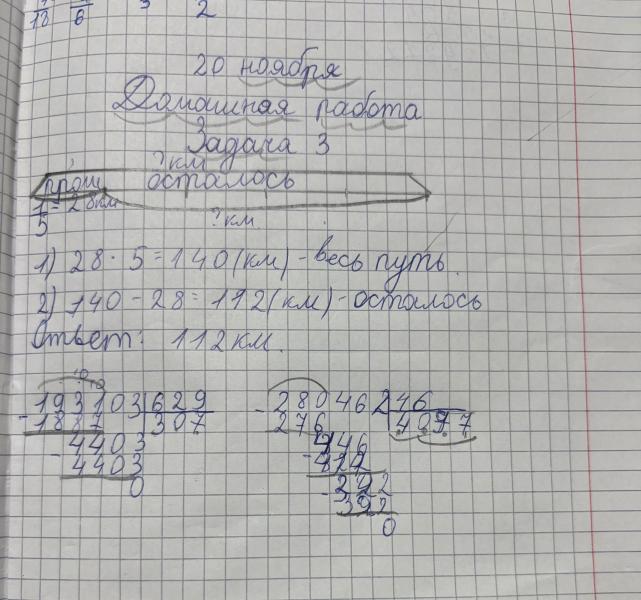 18 6 3 2
20 ноября
Домашная работа
Задача 3
? км
прош. осталось
1/5 = 28км
? км
1) 28 · 5 = 140 (км) - весь путь.
2) 140 - 28 = 112 (км) - осталось
Ответ: 112 км.
193103 629
- 1887 307
4403
- 4403
0
- 280462 46
276 4097
446
- 414
- 322
322
0